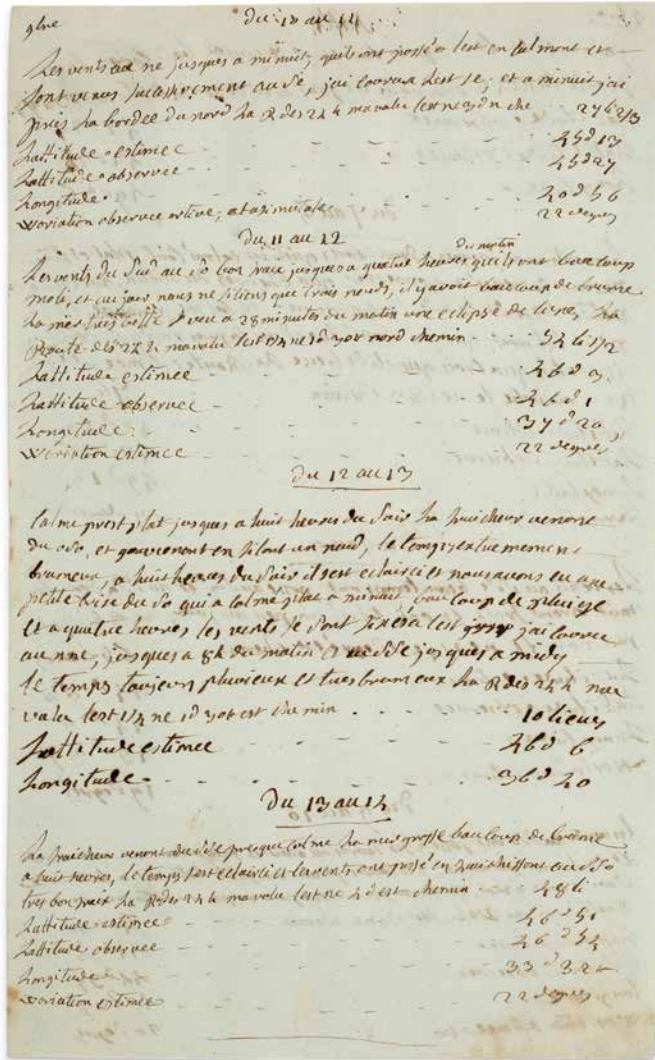 9bre du 10 au 11
Les vents au ne jusques a minuit, quils ont passé a lest en calmont et
sont venus successivement au se, jai couru lest se, et a minuit jai
pris la bordee du nord la R des 24 h ma valu lest ne 3d n che 27 l 2/3
Lattitude estimee 45d 13
Lattitude observee 45d 27
Longitude 40d 56
Variation observee ortive, et azimutale 22 degres
Du 11 au 12
Les vents du Sud au so bon frais jusques a quatre heures du matin quils ont beaucoup
moli, et au jour nous ne filiens que trois neuds, il y avoit beaucoup de brume
La mer tres belle veu a 28 minutes du matin une eclipse de lune, La
Route des 24 h ma valu lest 1/4 ne 1d 30 nord chemin 54 li 1/2
Lattitude estimee 46d 3
Lattitude observee 46d 1
Longitude 37d 20
Variation estimee 22 degres
Du 12 au 13
Calme presq plat jusques a huit heures du Soir La fraicheur venone
du oso, et gouvernent en filant un neud, le temps extremement
brumeux, a huit heures du Soir il sest eclairci et nous avons eu une
petite brise du So qui a calmé plat a minuit, beaucoup de pluige
Et a quatre heures les vents se sont fixés a lest jai couru
au nne, jusques a 8h du matin et au jusques a midy
Le temps toujours pluvieux et tres brumeux La R des 24 h ma
valu lest 1/4 ne 1d 30 est chemin 10 lieues
Lattitude estimee 46d 6
Longitude 36d 40
Du 13 au 14
La fraicheur venont du presque calme La mer grosse beaucoup de brume
a huit heures, le temps sest eclairci et les vents ont passé en fraichissont au so
tres bon frais La R des 24 h ma valu lest ne 4d est chemin 48 li
Lattitude estimee 46d 51
Lattitude observee 46d 54
Longitude 33d 32
Variation estimee 22 degres